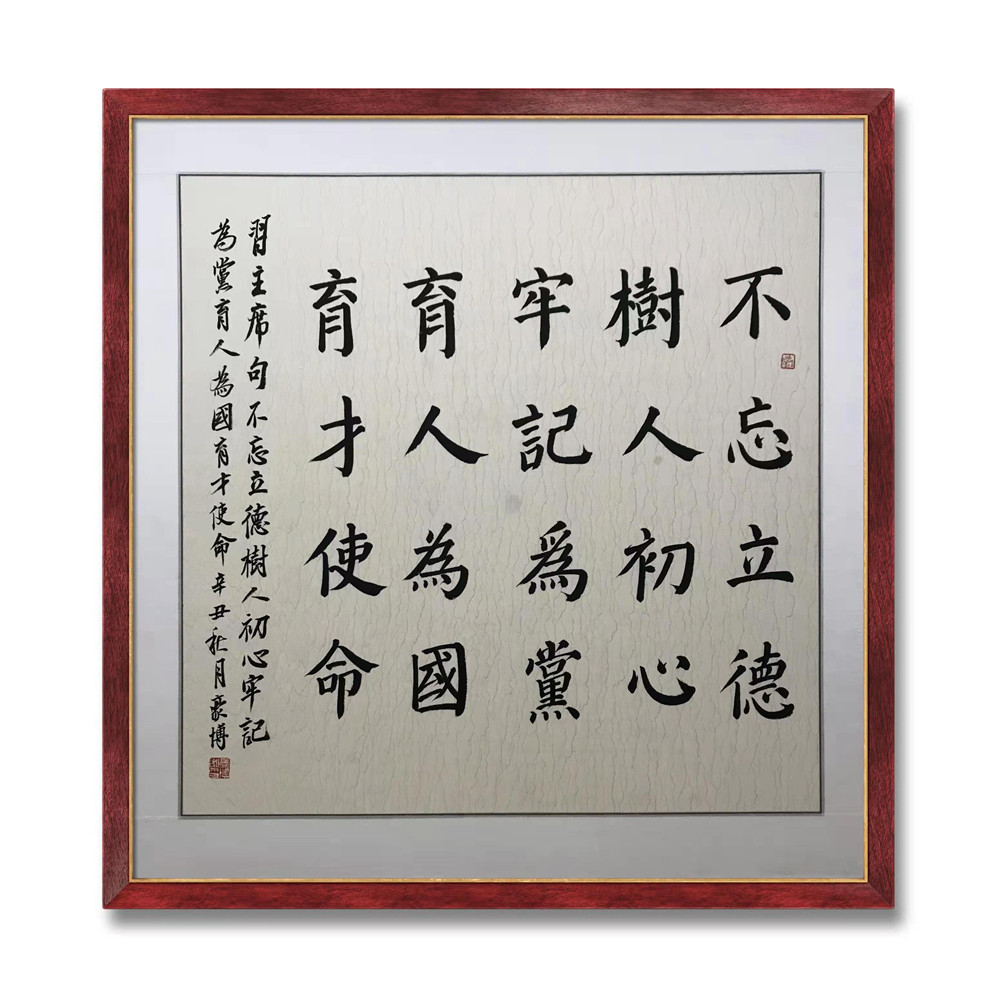 不忘立德
樹人初心
牢記爲黨
育人為國
育才使命
習主席句不忘立德樹人初心牢記
為黨育人為國育才使命辛丑秋月豪博